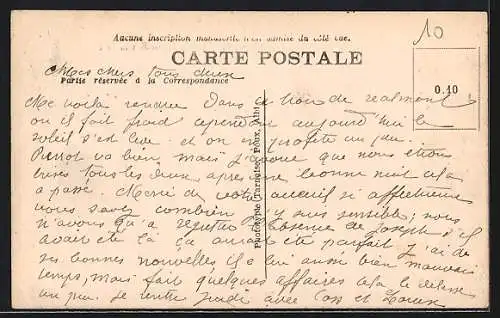 Aucune inscription manuscrite n'est admise du côté vue.
10
CARTE POSTALE
Mes chers tous deux
Partie réservée à la Correspondance
0.10
Me voilà rendue dans ce trou de realmont
ou il fait froid cependant aujourd'hui le
soleil s'est levé et on en profite un peu.
Pierrot va bien, mais j'avoue que nous étions
tous les deux, après une bonne nuit cela
a passé. Merci de votre accueil si affectueux
vous savez combien j'y suis sensible; nous
n'avons qu'à regretter l'absence de Joseph s'il
avait été là ça aurait été parfait j'ai de
ses bonnes nouvelles il a lui aussi bien mauvais
temps, mais fait quelques affaires cela le délasse
un peu. je rentre jeudi avec et
Phototypie Tarnaise, Poux, Albi